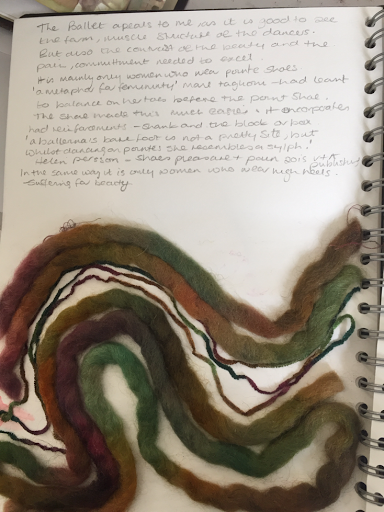 The Ballet apeals to me as it is good to see
the form, muscle structure of the dancers.
But also the contrast of the beauty and the
pain, commitment needed to excel.
It is mainly only women who wear pointe shoes.
'a metaphor for femininity' Marie taglioni - had learnt
to balance on her toes before the point shoe.
The shoe made this much easier as it incorporates
had reinforcements - shank and the block or box
'a ballerina's bare foot is not a pretty site, but
whilst dancing on pointes she resembles a sylph.'
Helen persson - Shoes pleasure + pain 2015 V+A
publishing
In the same way it is only women who wear high heels.
Suffering for beauty.